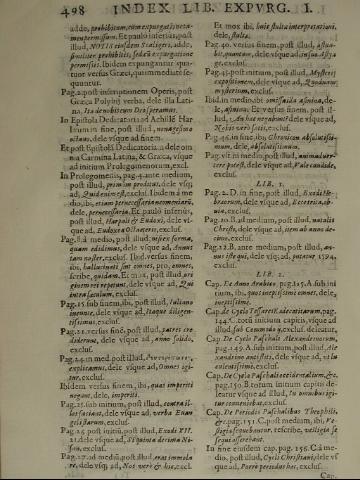 498 INDEX LIB. EXPVRG. I.
addo, prohibitum, cum expurg. is neta-
men permissum. Et paulò inferiùs, post
illud, NOTIS eiusdem Scaligeri, adde,
similiter prohibitis, sed cũ expurgatione
permissis. Ibidem expungantur qua-
tuor versus Græci, qui immediatè se-
quuntur.
Pag. 2. post inscriptionem Operis, post
Græca Polybij verba, dele illa Lati-
na, Ita de nobis tum Dorispetamus.
In Epistola Dedicatoria ad Achille Har
læum in fine, post illud, nonagesima
octaua, dele vsque ad finem.
Et post Epistolã Dedicatoriã dele om
nia Carmina Latina, & Græca, vsque
ad initium Prolegomenon, excl.
In Prolegomenis, pag. 4. ante medium,
post illud, primùm prodeat, dele vsq;
ad, Quid enim est, exclus. Ibidem à me
dio, ibi, etiam pernecessaria nemo nũrũ,
dele, pernecessaria. Et paulò inferiùs,
post illud, Harpali & Eudoxi, dele vs-
que ad, Eudoxea Octaeteris, exclus.
Pag. 8. à medio, post illud, vnisex forma,
quam edidimus, dele vsque ad, Annus
tam noster, exclus. Ibid. versus finem,
ibi, hallucinati sunt omnes, pro, omnes,
scribe, quidam. Et max. post illud, ori
ginem rei repetunt, dele vsque ad, Qui
intersaculum, exclus.
Pag. 15. sub finem, ibi, post illud, Iuliano
inuenit, dele vsque ad, Itaque diligen-
tissimus, exclus.
Pag. 21. versus finẽ, post illud, patres cre
diderunt, dele vsque ad, anno solido,
exclus.
Pag. 24. in med. post illud,
explicamus, dele vsque ad, Omnes igi
tur, exclus.
Ibidem versus finem, ibi, quas imperiti
negant, dele, imperiti.
Pag. 25. sub initium, post illud, contra il-
los faciunt, dele vsque ad, verba Euan
gelistarum, exclus.
Pag. 26. post initiũ, post illud, Exodi XII.
21. dele vsque ad, Si quinta decima Ni-
san, exclus.
Pag. 27. ad mediũ, post illud, gras immola
re, dele vsq; ad, Nos vero & hic, excl.
Et mox ibi, huic stulta interpretationi,
dele, stulta.
Pag. 40. versus finem, post illud, assua-
bit, quantum, dele vsque ad, infrus. Asty
ge, exclus.
Pag. 45. post initium, post illud, Mysterij
cognitione, dele vsque ad, Quidnam
mysterium, exclus.
Ibid. in medio, ibi
le, Et versus finem, post il-
lud, An hæc negabunt? dele vsque ad,
Nobis verò satis, exclus.
Pag. 46. sub fine, ibi, Chronicon absolutissi-
mum, dele, absolutissimum.
Pag. vlt. in medio, post illud, animaduer-
tere potest, dele vsque ad, Vale candide,
exclus.
LIB. 1.
Pag. 2. D. in fine, post illud, Exodi He-
bræorum, dele vsque ad,
bus, exclus.
Pag. 10. B. ad medium, post illud, natalis
Christi, dele vsque ad, item ab anno de-
cimo, exclus.
Pag. 12. B. ante medium, post illud, an-
nus iste qui, dele vsque ad, putatur 1594.
exclus.
LIB. 2.
Cap. De Anno Arabico pag. 105. A. sub ini
tium, ibi, quot ineptissimè omnes, dele,
ineptissimè.
Cap. De Cyclo Tessaresk. pag.
144. C. toto initium capitis, vsque ad
illud, Sub Commodo & c. exclus. deleatur.
Cap. De Cyclo Paschali Alexandrinorum,
pag. 149. A. sub initium, post illud, Ale
xandrum antistiti, dele vsque ad, vt la
culentissimè, exclus.
Cap. De Cyclo Paschali &c.
pag. 150. B. totum initium capitis de-
leatur vsque ad illud, In omnibus igi-
tur conuenit, exclus.
Cap. De Periodis Paschalibus Theophili,
&c. pag. 151. C. post medium, ibi, Ve-
stigia sequebantur, rescribe, vestigia se
sequi asserebant.
In fine eiusdem cap. pag. 156. C. à me-
dio, post illud, Cyclis Christiani, dele vs
que ad, Porrò periodus hac, exclus.
Cap.